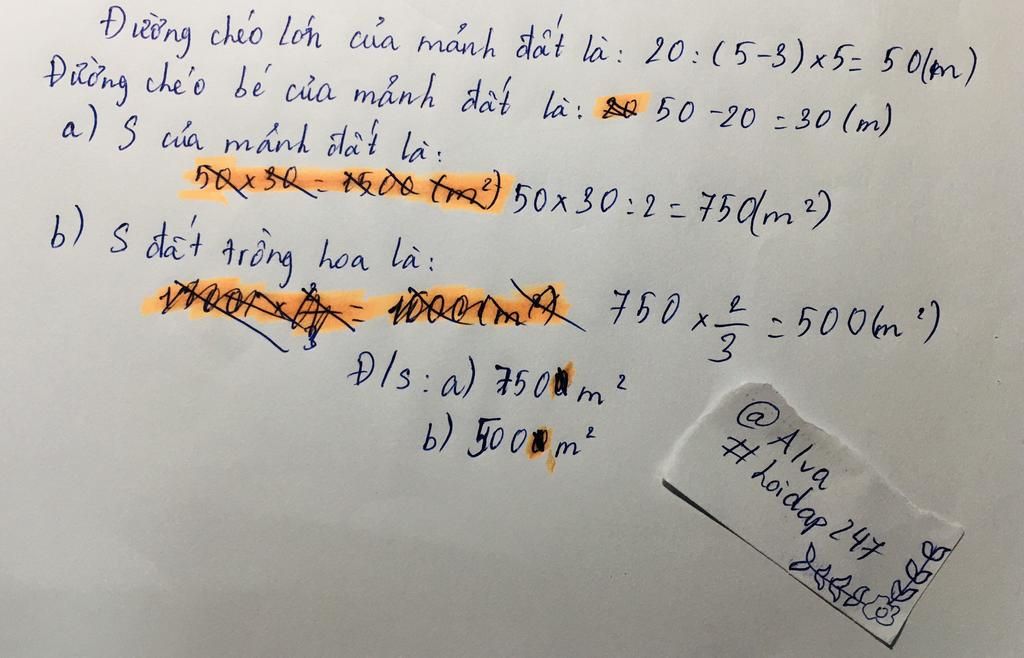 Đường chéo lớn của mảnh đất là: 20 : (5-3) x 5 = 50 (m)
Đường chéo bé của mảnh đất là: 50 - 20 = 30 (m)
a) S của mảnh đất là:
50 x 30 = 1500 (m²) 50 x 30 : 2 = 750 (m²)
b) S đất trồng hoa là:
= 1000 (m²) 750 x 2/3 = 500 (m²)
Đ/s : a) 750 m²
b) 500 m²
@Alva
#hoidap247